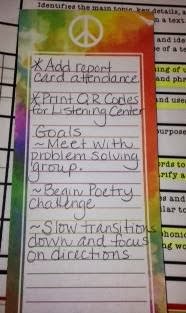 Identifies the main topic, key details, a
n a text
and ide
e of a te
* Add report
card attendance
ung of
* Print QR Codes
for Listening Center
Goals
~Meet with
problem solving
group.
urpose
~Begin Poetry
challenge
ords to
arify
and
~Slow transitions
down and focus
on directions